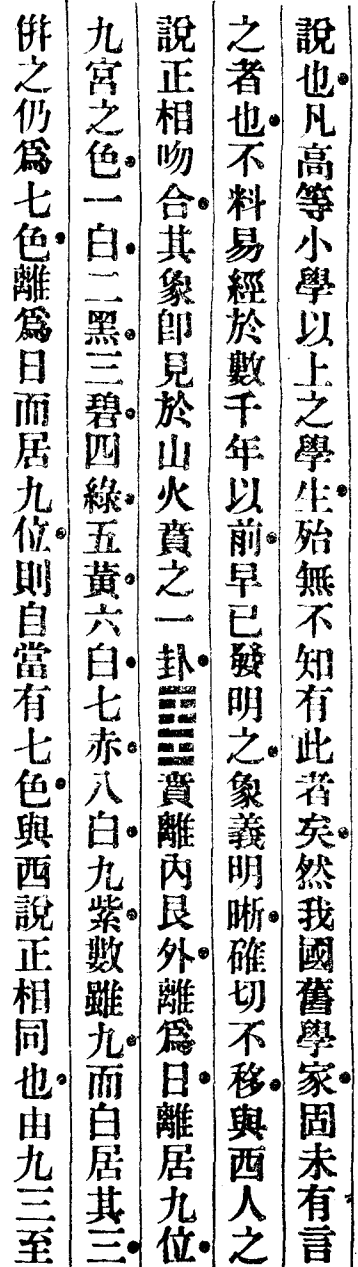 說也。凡高等小學以上之學生。殆無不知有此者矣。然我國舊學家。固未有言
之者也。不料易經於數千年以前。早已發明之。象義明晰。確切不移。與西人之
說正相吻合。其象卽見於山火賁之一卦。䷕賁離內艮外。離爲日。離居九位。
九宮之色。一白。二黑。三碧。四綠。五黃。六白。七赤。八白。九紫。數雖九。而白居其三。
倂之仍爲七色。離爲日而居九位。則自當有七色。與西說正相同也。由九三至